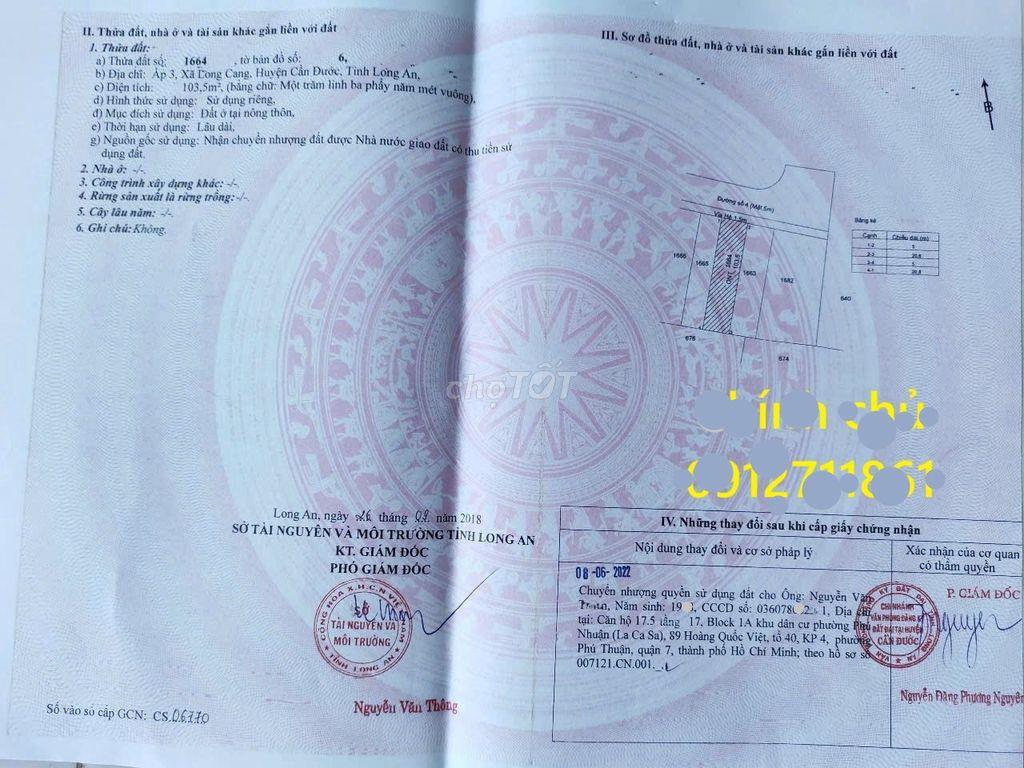 II. Thửa đất, nhà ở và tài sản khác gắn liền với đất
1. Thửa đất:
a) Thửa đất số: 1664 , tờ bản đồ số: 6,
b) Địa chỉ: Ấp 3, Xã Long Cang, Huyện Cần Đước, Tỉnh Long An,
c) Diện tích: 103,5m², (bằng chữ: Một trăm linh ba phẩy năm mét vuông),
d) Hình thức sử dụng: Sử dụng riêng,
đ) Mục đích sử dụng: Đất ở tại nông thôn,
e) Thời hạn sử dụng: Lâu dài,
g) Nguồn gốc sử dụng: Nhận chuyển nhượng đất được Nhà nước giao đất có thu tiền sử
dụng đất.
2. Nhà ở: -/-.
3. Công trình xây dựng khác: -/-.
4. Rừng sản xuất là rừng trồng: -/-.
5. Cây lâu năm: -/-.
6. Ghi chú: Không.
III. Sơ đồ thửa đất, nhà ở và tài sản khác gắn liền với đất
B
Đường số 4 (Mặt 5m)
Vỉa Hè 1,5m
1666
1665
1664
ONT 103.5
1663
1682
640
676
674
Bảng kê
Cạnh Chiều dài (m)
1-2 5
2-3 20.6
3-4 5
4-1 20.8
chợTỐT
chính chủ
Long An, ngày 26 tháng 09 năm 2018
SỞ TÀI NGUYÊN VÀ MÔI TRƯỜNG TỈNH LONG AN
KT. GIÁM ĐỐC
PHÓ GIÁM ĐỐC
CỘNG HÒA X.H.C.N VIỆT NAM
SỞ
TÀI NGUYÊN VÀ
MÔI TRƯỜNG
TỈNH LONG AN
Nguyễn Văn Thông
Số vào sổ cấp GCN: CS 06770
IV. Những thay đổi sau khi cấp giấy chứng nhận
Nội dung thay đổi và cơ sở pháp lý
Xác nhận của cơ quan
có thẩm quyền
08-06-2022
Chuyển nhượng quyền sử dụng đất cho Ông: Nguyễn Văn
Năm sinh: CCCD số: Địa chỉ
tại: Căn hộ 17.5 tầng 17, Block 1A khu dân cư phường Phú
Nhuận (La Ca Sa), 89 Hoàng Quốc Việt, tổ 40, KP 4, phường
Phú Thuận, quận 7, thành phố Hồ Chí Minh; theo hồ sơ số
007121.CN.001.
P. GIÁM ĐỐC
CHI NHÁNH
VĂN PHÒNG ĐĂNG KÝ
ĐẤT ĐAI TẠI HUYỆN
CẦN ĐƯỚC
Nguyễn Đăng Phương Nguyên